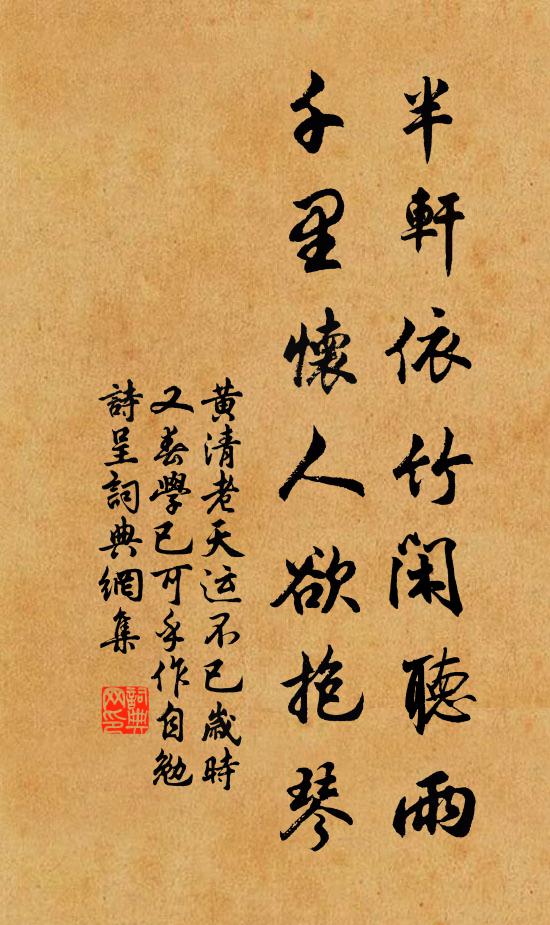 半軒依竹閑聽雨
千里懷人欲抱琴
黄清老天运不已歲時
又春學已可乎作自勉
詩呈詞典網集
詞典
网印